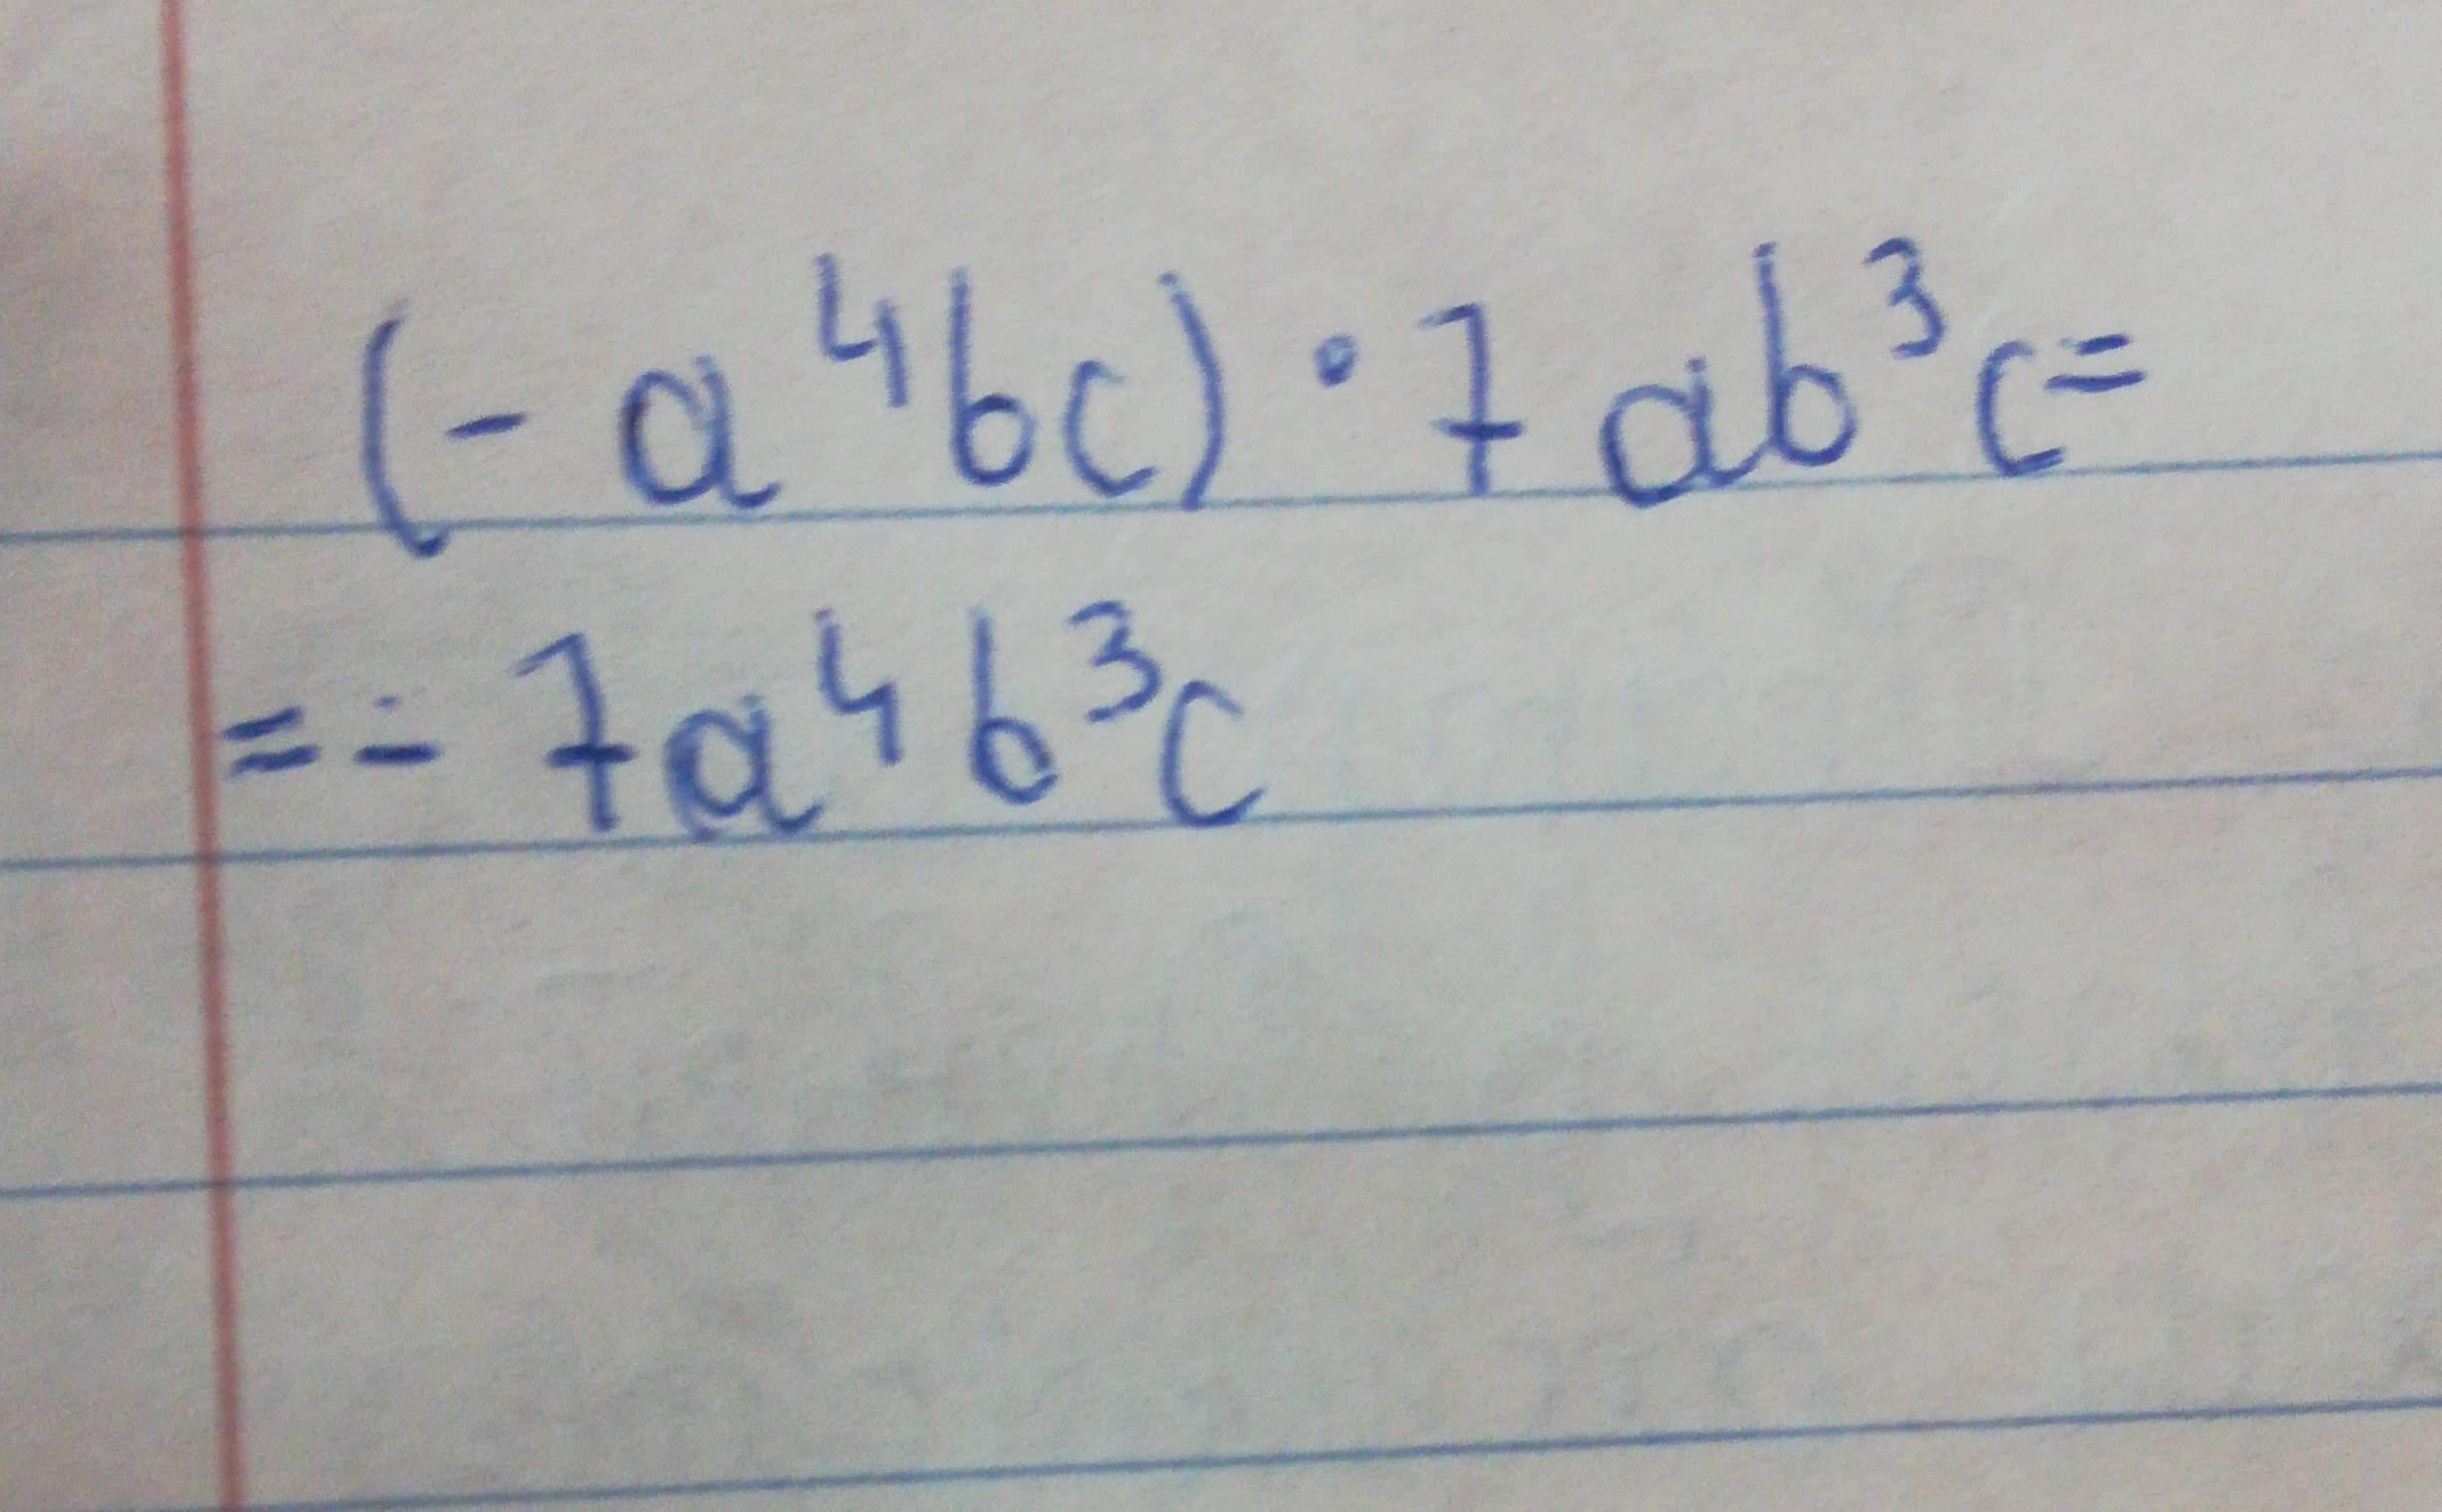 (- a⁴bc) · 7 ab³c=
= - 7a⁴b³c